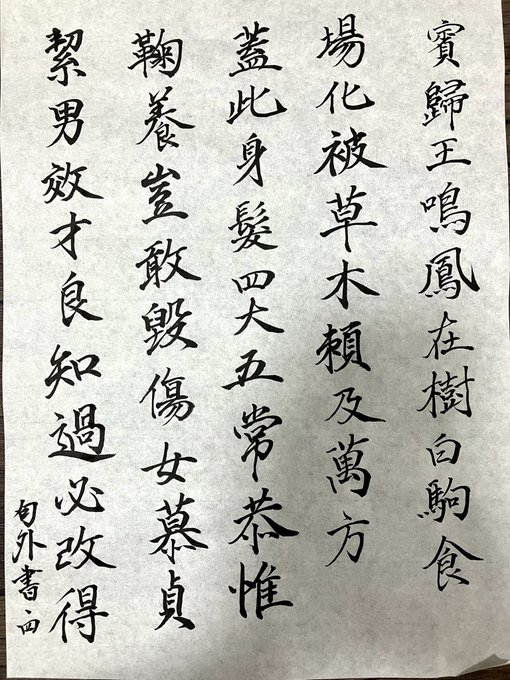 賓歸王鳴鳳在樹白駒食
場化被草木賴及萬方
蓋此身髮四大五常恭惟
鞠養豈敢毀傷女慕貞
絜男效才良知過必改得
外書